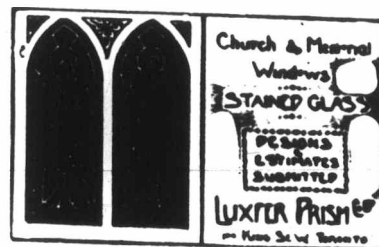 Church & Memorial
Windows
STAINED GLASS
DESIGNS
&
ESTIMATES
SUBMITTED
LUXFER PRISM Co
King St W Toronto